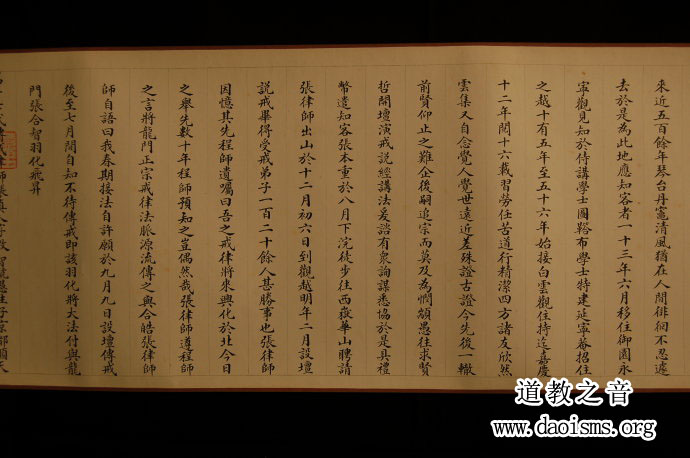 來近五百餘年琴台丹竈清風猶在人間徘徊不忍遽
去於是為此地應知客者一十三年六月移住御園永
寧觀見知於侍講學士圖鞳布學士特建延寧菴招住
之越十有五年至五十六年始接白雲觀住持迄嘉慶
十二年間十六載習勞任苦道行精潔四方諸友欣然
雲集又自念覺人覺世遠近差殊證古證今先後一轍
前賢仰止之難企後嗣追宗而莫及為憫頹愚往求賢
哲開壇演戒說經講法爰諮有衆詢謀悉協於是具禮
幣遣知客張本重於八月下浣徒步往西嶽華山聘請
張律師出山於十二月初六日到觀越明年二月設壇
說戒畢得受戒弟子一百二十餘人甚勝事也張律師
因憶其先程師遺囑曰吾之戒律將來興化於北今日
之舉先數十年程師預知之豈偶然哉張律師遵程師
之言將龍門正宗戒律法脈源流傳之與合皓張律師
師自語曰我春期接法自許願於九月九日設壇傳戒
後至七月間自知不待傳戒即該羽化將大法付與龍
門張合智羽化飛昇
道教之音
www.daoisms.org